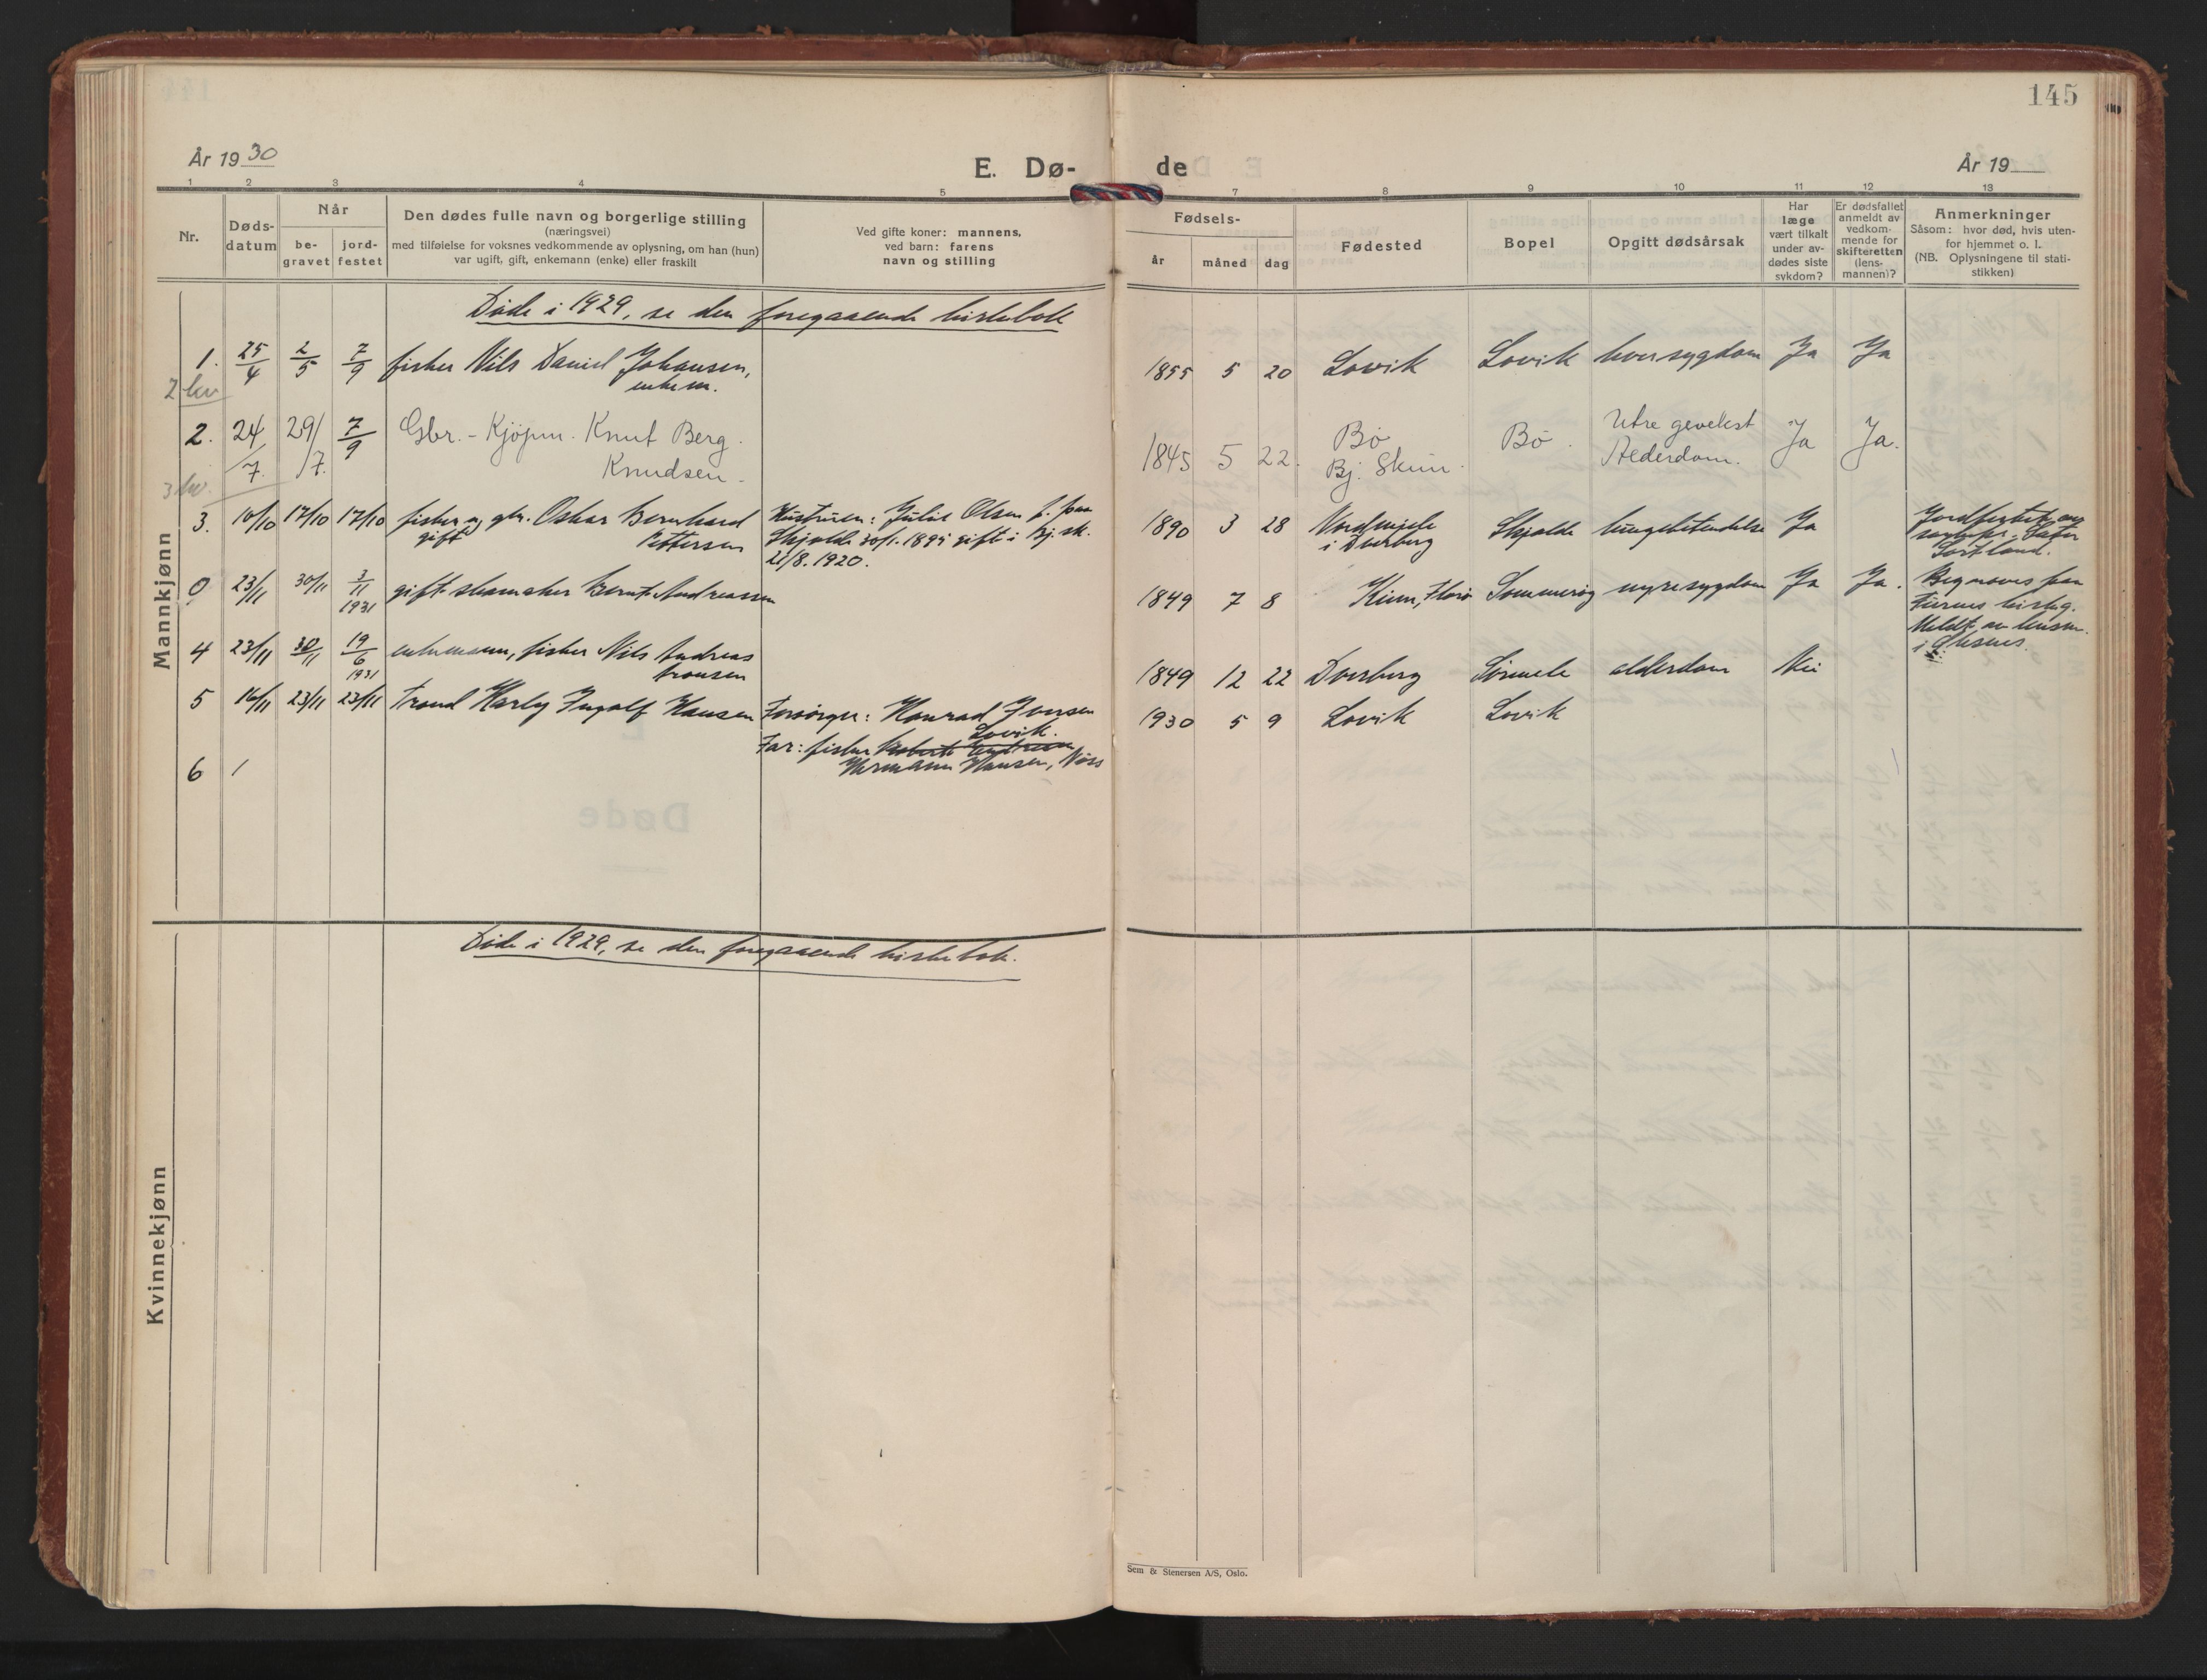 145
År 19 30
E. Dø-
de
År 19
1 2 3 4 5 7 8 9 10 11 12 13
Nr.
Døds-
datum
Når
be-
gravet
jord-
festet
Den dødes fulle navn og borgerlige stilling
(næringsvei)
med tilføielse for voksnes vedkommende av oplysning, om han (hun)
var ugift, gift, enkemann (enke) eller fraskilt
Ved gifte koner: mannens,
ved barn: farens
navn og stilling
Fødsels-
år
måned
dag
Fødested
Bopel
Opgitt dødsårsak
Har
læge
vært tilkalt
under av-
dødes siste
sykdom?
Er dødsfallet
anmeldt av
vedkom-
mende for
skifteretten
(lens-
mannen)?
Anmerkninger
Såsom: hvor død, hvis uten-
for hjemmet o. l.
(NB. Oplysningene til stati-
stikken)
Mannkjønn
Døde i 1929, se den foregaaende kirkebok
1. 25/4 2/5 7/9 fisker Nils Daniel Johansen, 1855 5 20 Lovik Lovik Ja Ja
enkem.
2 kv
2. 24/7. 29/7. 7/9 Gbr. - Kjöpm. Knut Berg 1845 5 22. Bö Bö. Ja Ja.
Knudsen Bj. Alderdom.
3 kv.
3. 10/10 17/10 17/10 fisker og gbr. Oskar Bernhard Hustruen: Julie Olsen f. paa 1890 3 28 Skjolde lungebetendelse Ja
gift Pettersen Skjolde 30/1. 1895 gift i Bj. sk. i Dverberg
21/8. 1920. Sortland.
0 23/11 30/11 3/11 1931 gift skomaker Bernt Andreassen 1849 7 8 Kinn, Florø nyresygdom Ja Ja.
4 23/11 30/11 19/6 1931 enkemann, fisker Nils Andreas 1849 12 22 Dverberg alderdom Nei
5 16/11 23/11 23/11 Trond Harly Ingolf Hansen Forsörger: Konrad Iversen 1930 5 9 Lovik Lovik
Lovik.
Far: fisker
Hermann Hansen, Nöss
6 /
Kvinnekjønn
Døde i 1929, se den foregaaende kirkebok.
Sem & Stenersen A/S, Oslo.